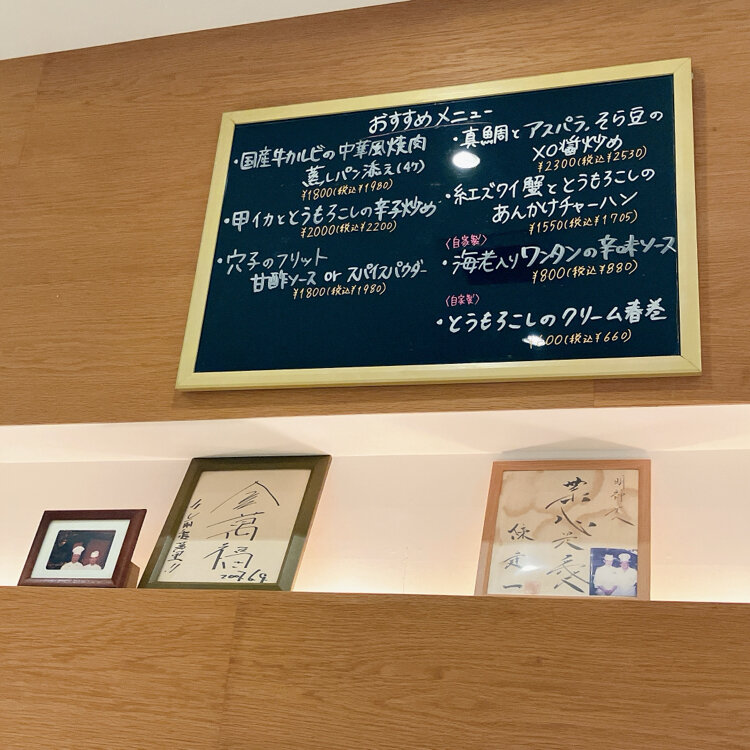 おすすめメニュー
・国産牛カルビの中華風焼肉
蒸しパン添え(4ケ)
¥1800(税込¥1980)
・甲イカととうもろこしの辛子炒め
¥2000(税込¥2200)
・穴子のフリット
甘酢ソース or スパイスパウダー
¥1800(税込¥1980)
・真鯛とアスパラ、そら豆の
XO醤炒め
¥2300(税込¥2530)
・紅ズワイ蟹ととうもろこしの
あんかけチャーハン
¥1550(税込¥1705)
〈自家製〉
・海老入りワンタンの辛味ソース
¥800(税込¥880)
〈自家製〉
・とうもろこしのクリーム春巻
(税込¥660)
金萬福